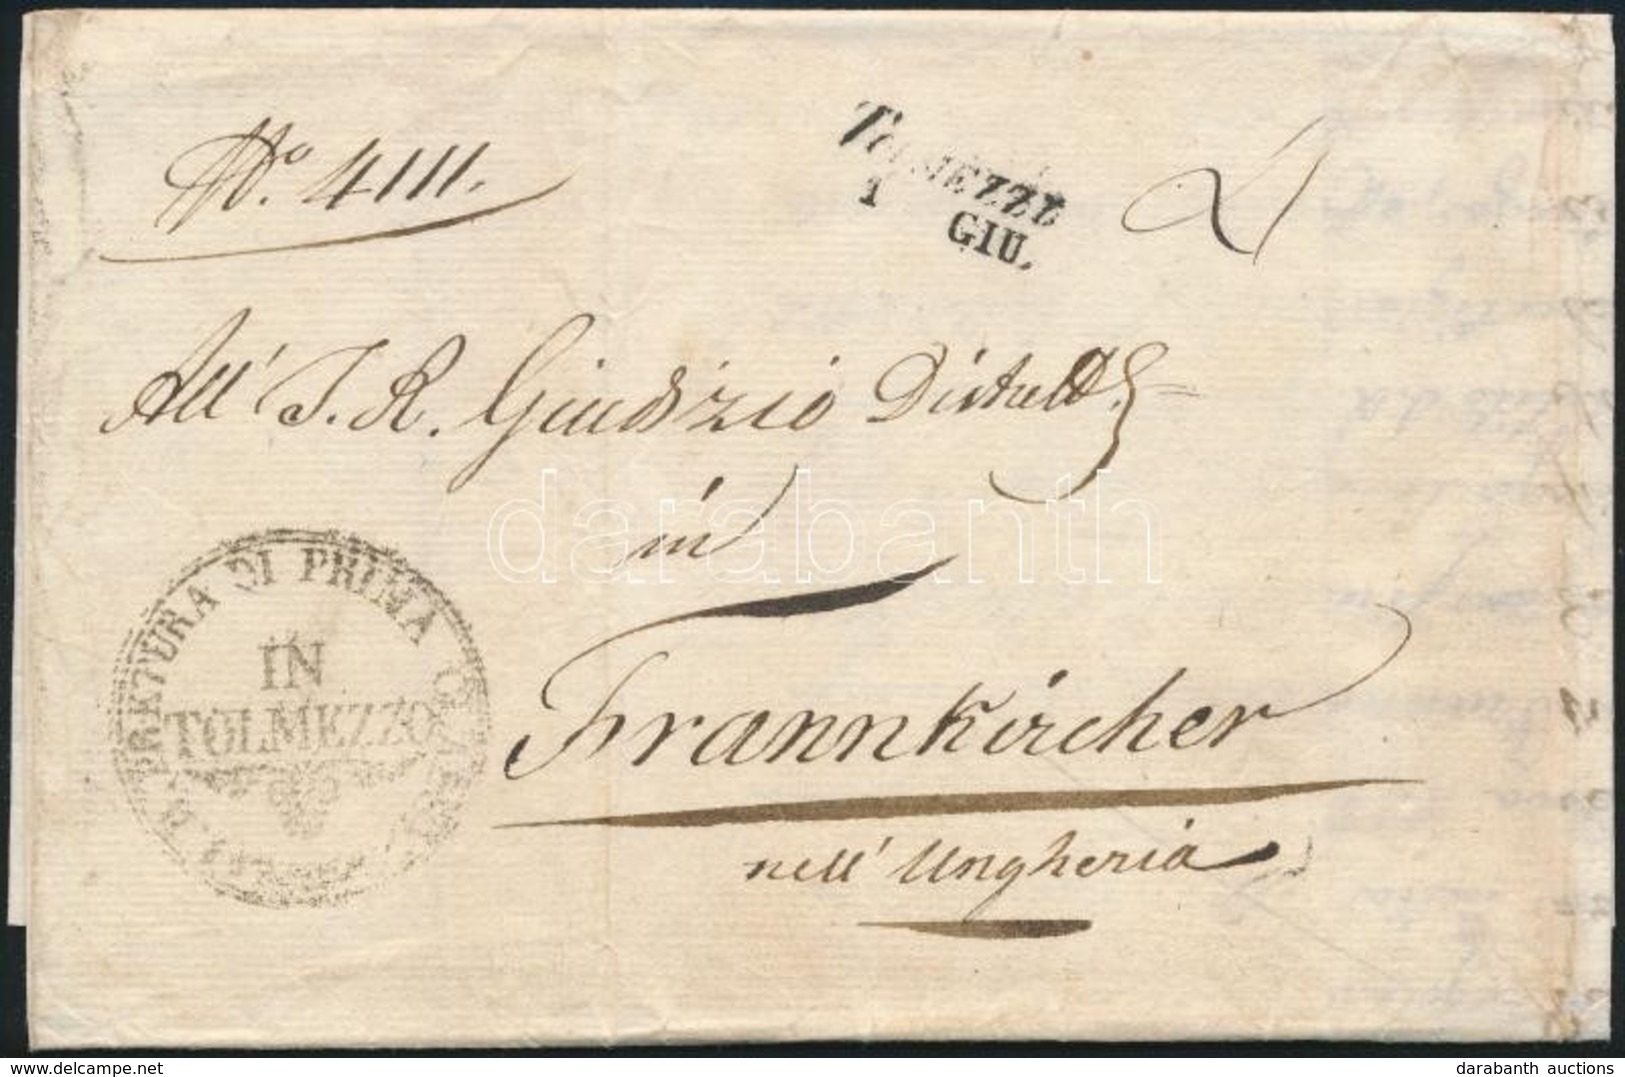 No. 4111.
TOLMEZZO
1 GIU.
All' I. R. Giudizio Distrett.
in
Frannkircher
nell' Ungheria
PREKTURA DI PRIMA
IN
TOLMEZZO
darabanth
darabanth.com
darabanth auctions